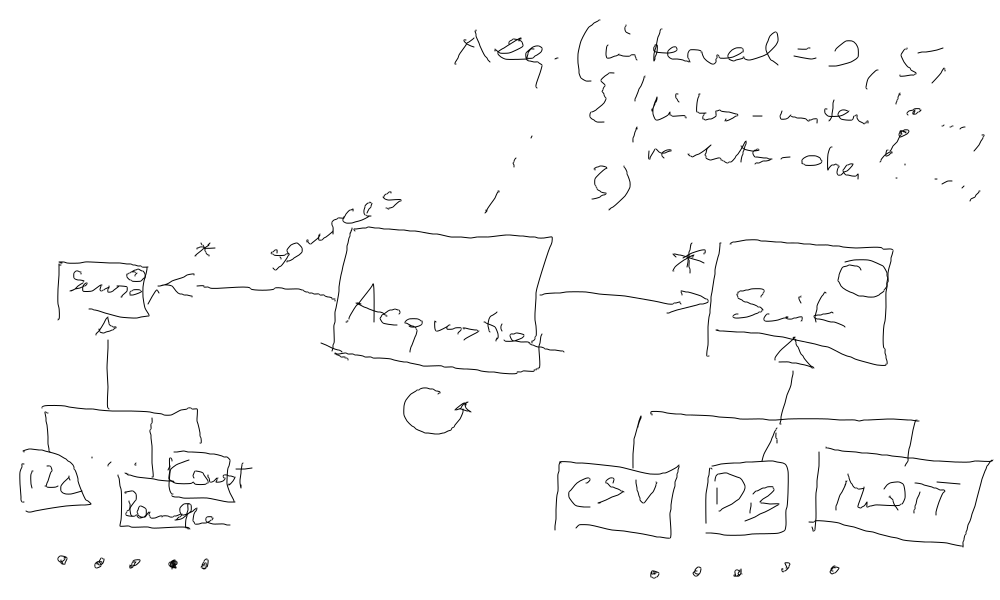 Acq. (interval = 0,5,
{ 'links-unten' : ...,
'rechts-oben' : ...,
})
sources
*
*
Sensor
Acquisition
Sink
I2C
...
Const
Random
CSV
DB
MQTT